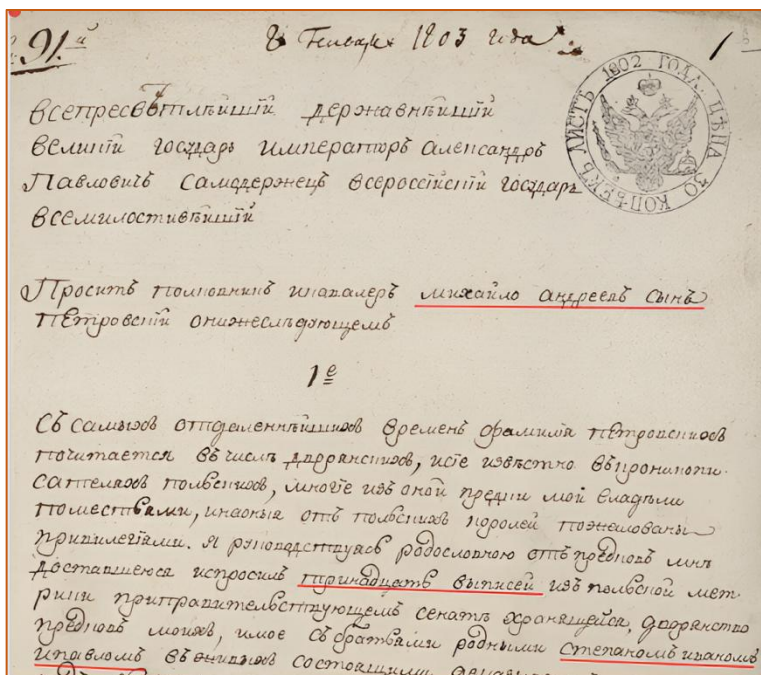 91.й
8 Генваря 1803 года
1
ЛИСТЪ 1802 ГОДА. ЦѢНА 30 КОПѢЕКЪ
всепресвѣтлѣишіи державнѣишіи
великіи государь императоръ александръ
Павловичь самодержецъ всероссіискіи государь
всемилостивѣишіи
Проситъ полковникъ икавалеръ михайло андреевъ сынъ
Петровскіи онижеслѣдующемъ
1е
Съ самыхъ отдаленнѣишихъ временъ фамилія Петровскихъ
почитается въ числѣ дворянскихъ, исіе извѣстно въкроникопи-
сателяхъ польскихъ, многіе изъ оной предки мои владѣли
поместьями, инаоныя отъ польскихъ королей пожалованы
привилегіями. Я руководствуясь родословною отъ предковъ мнѣ
доставшеюся испросилъ тринадцать выписей изъ польской мет-
рики приправительствующемъ сенатѣ хранящейся, дворянство
предковъ моихъ, имое съ братьями родными степаномъ иваномъ
ипавломъ въживыхъ состоящими